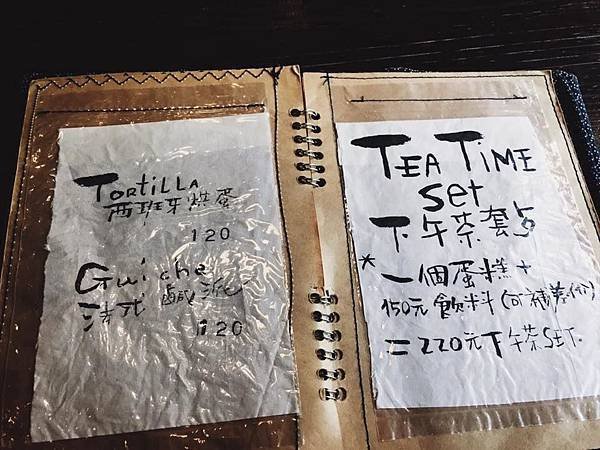 TORTILLA
西班牙烘蛋
120
Guiche
法式 鹹派
120
TEA TIME
Set
下午茶套点
* 一個蛋糕 +
150元飲料(可補差价)
= 220元下午茶SET.